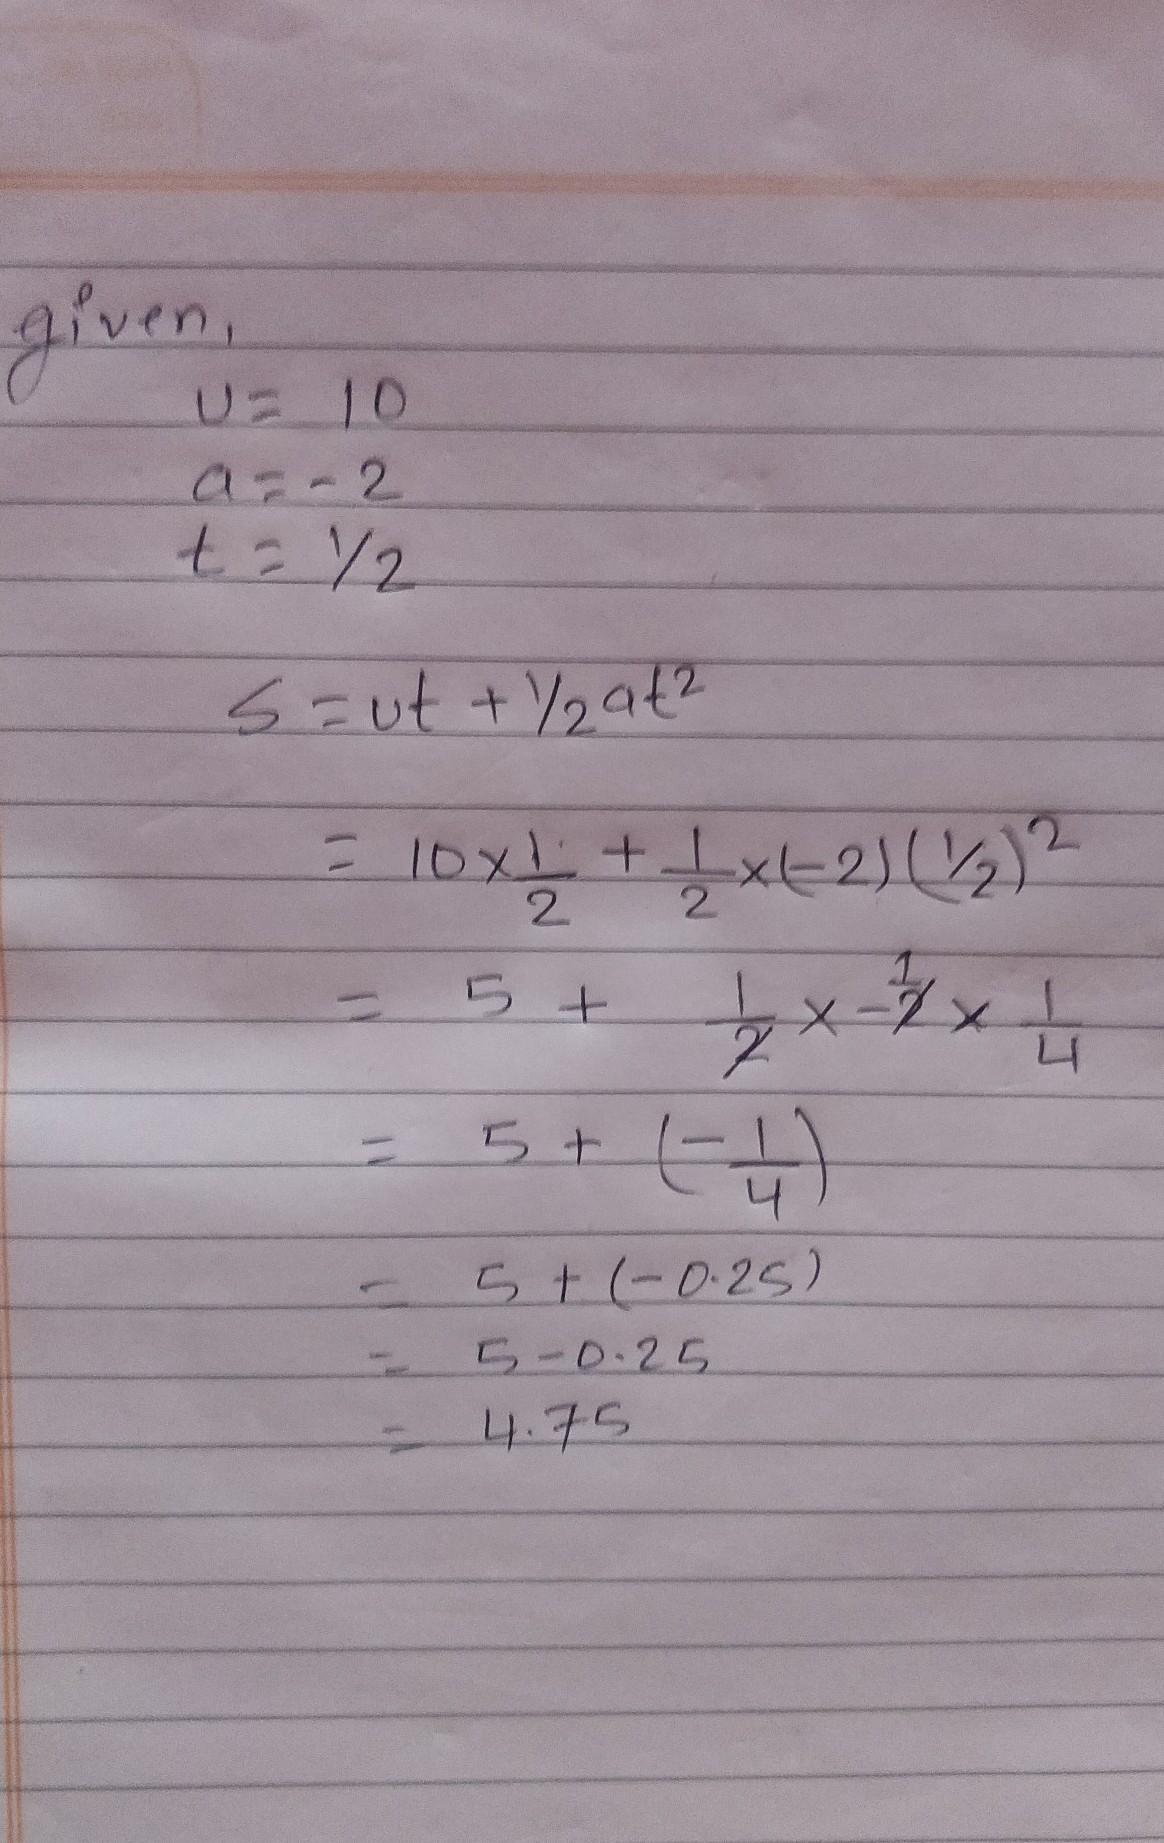 given,
u = 10
a = -2
t = 1/2
s = ut + 1/2 at²
= 10 × 1/2 + 1/2 × (-2) (1/2)²
= 5 + 1/2 × -2 1 × 1/4
= 5 + (-1/4)
= 5 + (-0.25)
= 5 - 0.25
= 4.75